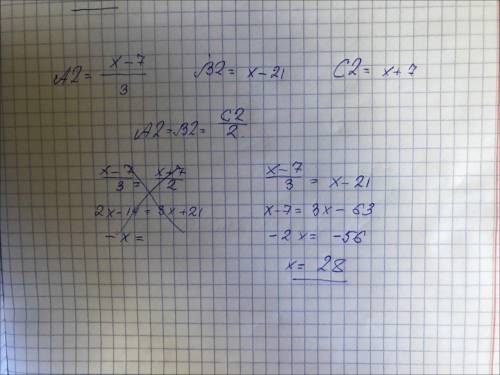 A2 = x-7/3   B2 = x-21   C2 = x+7
A2 = B2 = C2/2
x-7/3 = x+7/2
2x-14 = 3x+21
-x =
x-7/3 = x-21
x-7 = 3x-63
-2x = -56
x = 28